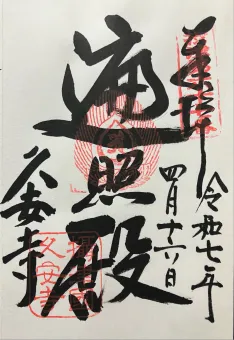 奉拝
令和七年
四月十六日
遍照殿
久安寺